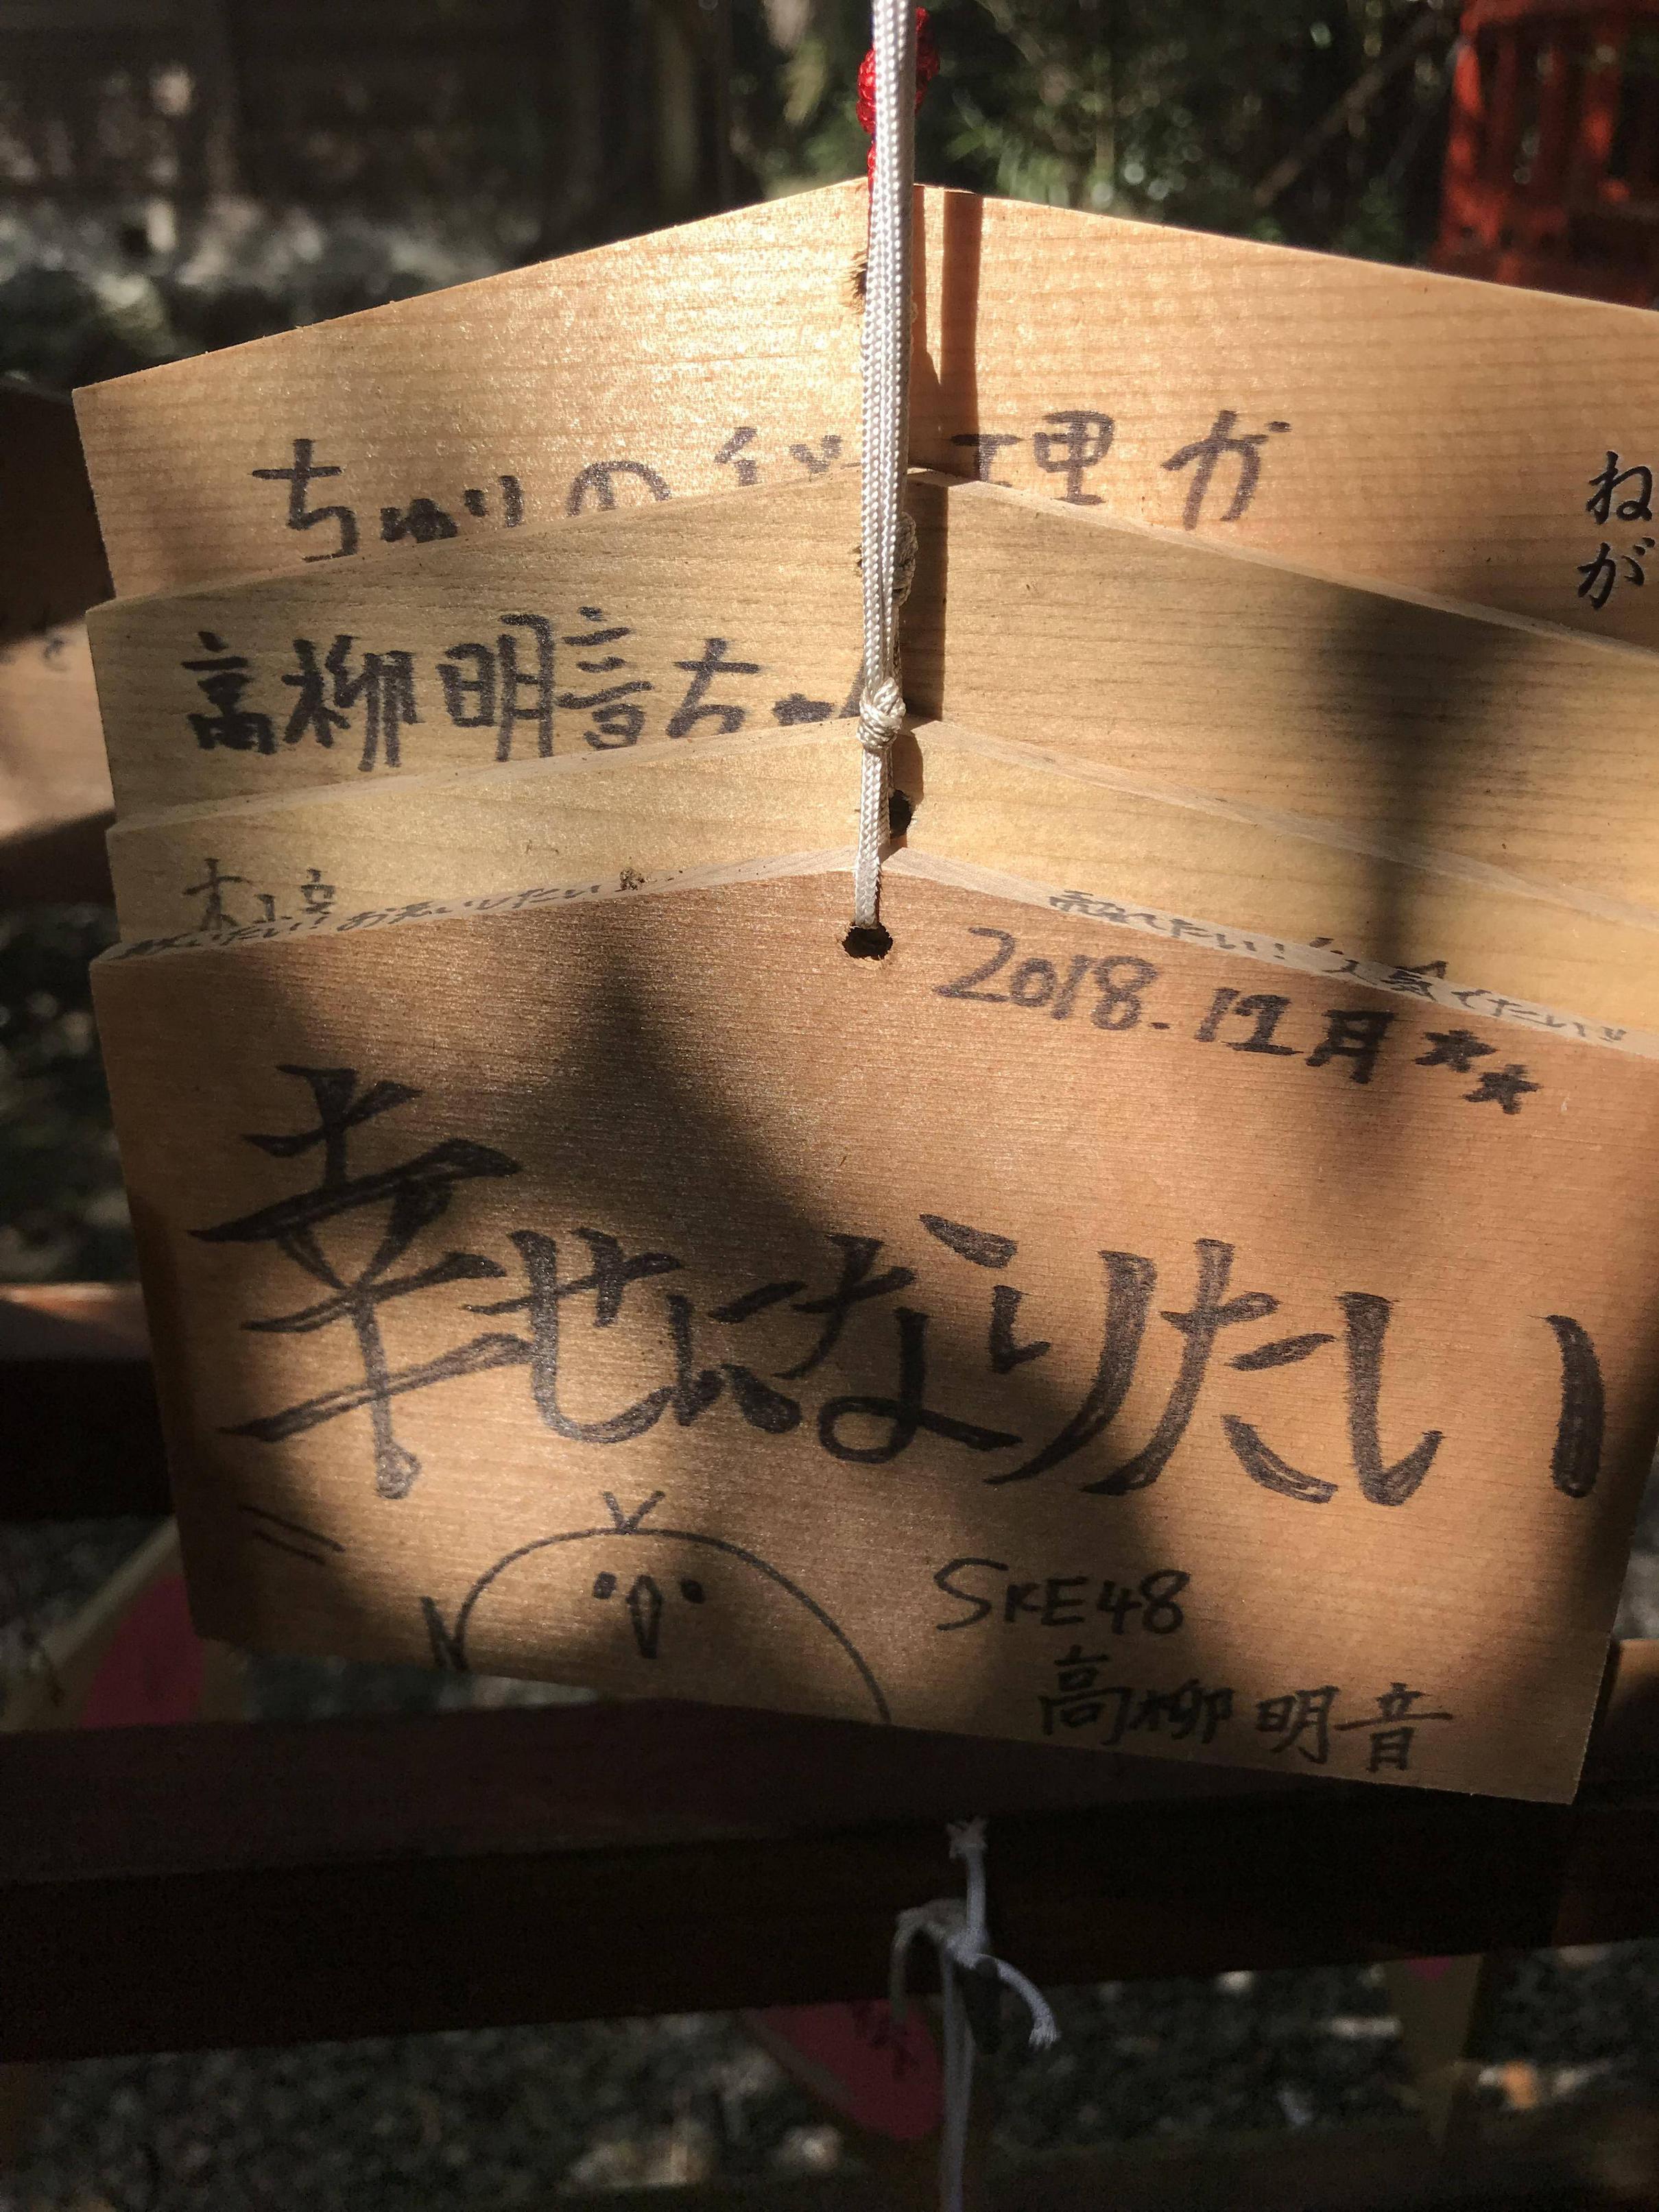 ちゅりの
理が
ねが
高柳明音ちゃん
お祝いしたい
2018.12月★★
幸せになりたい
SKE48
高柳明音